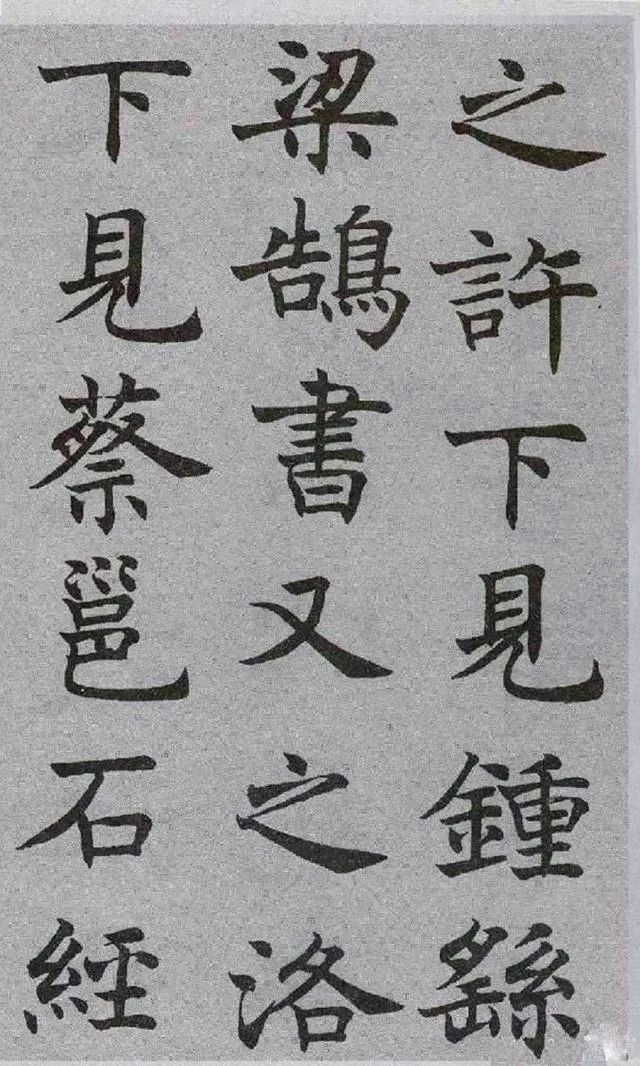 之許下見鍾繇
梁鵠書又之洛
下見蔡邕石經